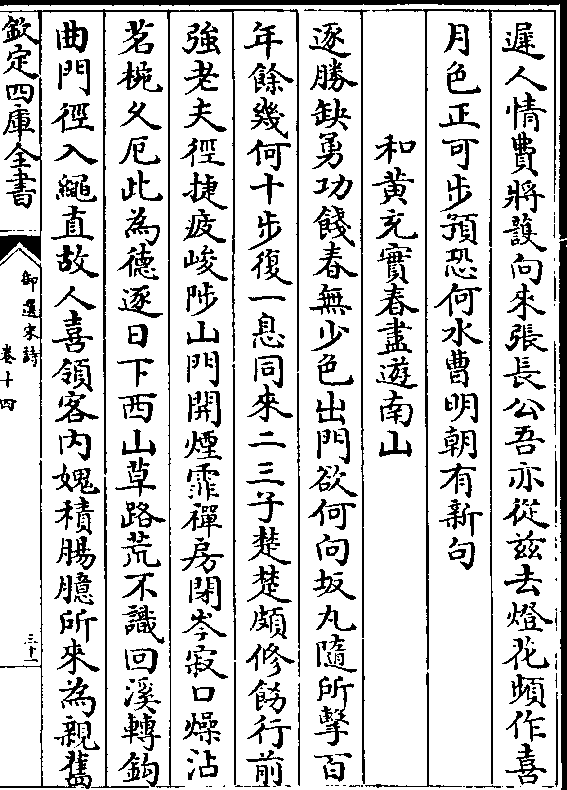 遲人情費將護向來張長公吾亦從兹去燈花頻作喜
月色正可步預恐何水曹明朝有新句
和黄充實春盡遊南山
逐勝缺勇功餞春無少色出門欲何向坂丸隨所擊百
年餘幾何十步復一息同來二三子楚楚頗修飭行前
強老夫徑捷疲峻陟山門開煙霏禪房閉岑寂口燥沾
茗椀久厄此為德逐日下西山草路荒不識回溪轉鈎
曲門徑入繩直故人喜領客内媿積腸臆所來為親舊
欽定四庫全書
御選宋詩
卷十四
三十一